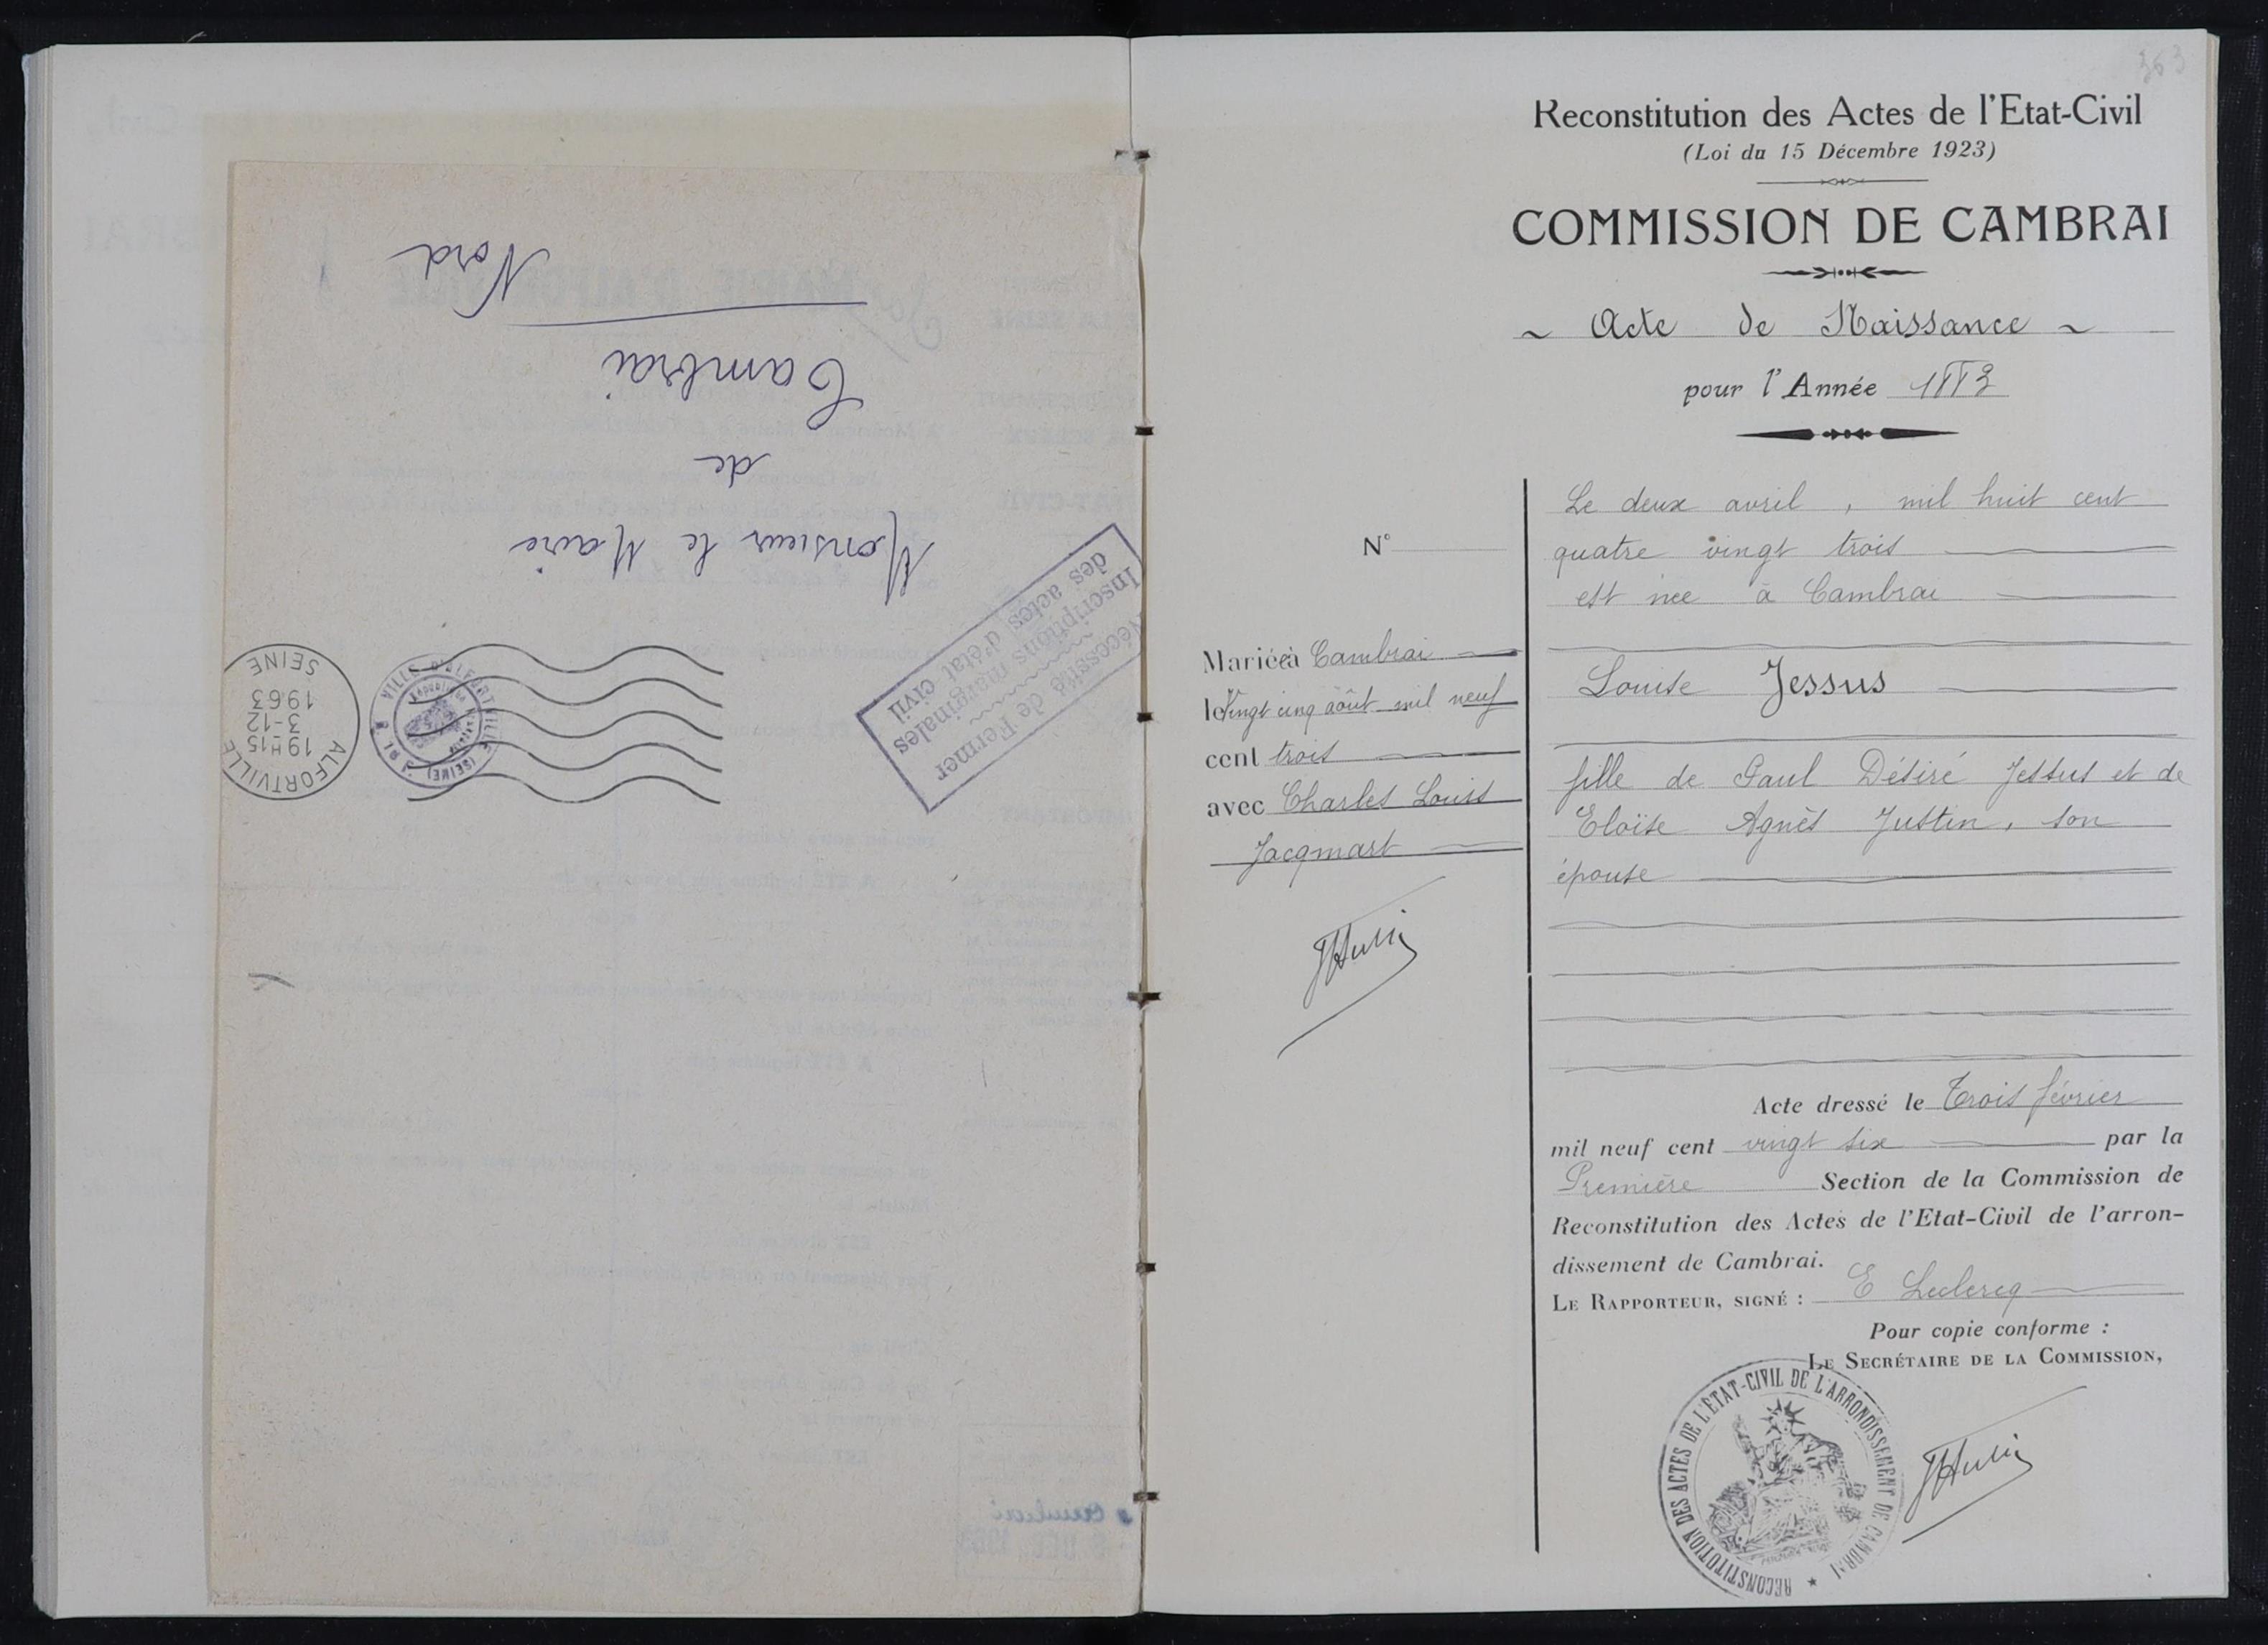 Monsieur le Maire
de
Cambrai
Nord
Nécessité de Fermer
Inscriptions marginales
des actes d'état civil
VILLE D'ALFORTVILLE
(SEINE)
ALFORTVILLE
19H15
3-12
1963
SEINE
363
Reconstitution des Actes de l'Etat-Civil
(Loi du 15 Décembre 1923)
COMMISSION DE CAMBRAI
~ Acte de Naissance ~
pour l'Année 1883
N°
Mariée à Cambrai
le Vingt cinq août mil neuf
cent trois
avec Charles Louis
Jacqmart
Le deux avril, mil huit cent
quatre vingt trois
est née à Cambrai
Louise Jessus
fille de Paul Désiré Jessus et de
Eloïse Agnès Justin, son
épouse
Acte dressé le Trois février
mil neuf cent vingt six par la
Première Section de la Commission de
Reconstitution des Actes de l'Etat-Civil de l'arron-
dissement de Cambrai.
LE RAPPORTEUR, SIGNÉ : E Leclercq
Pour copie conforme :
LE SECRÉTAIRE DE LA COMMISSION,
RECONSTITUTION DES ACTES DE L'ÉTAT-CIVIL DE L'ARRONDISSEMENT DE CAMBRAI